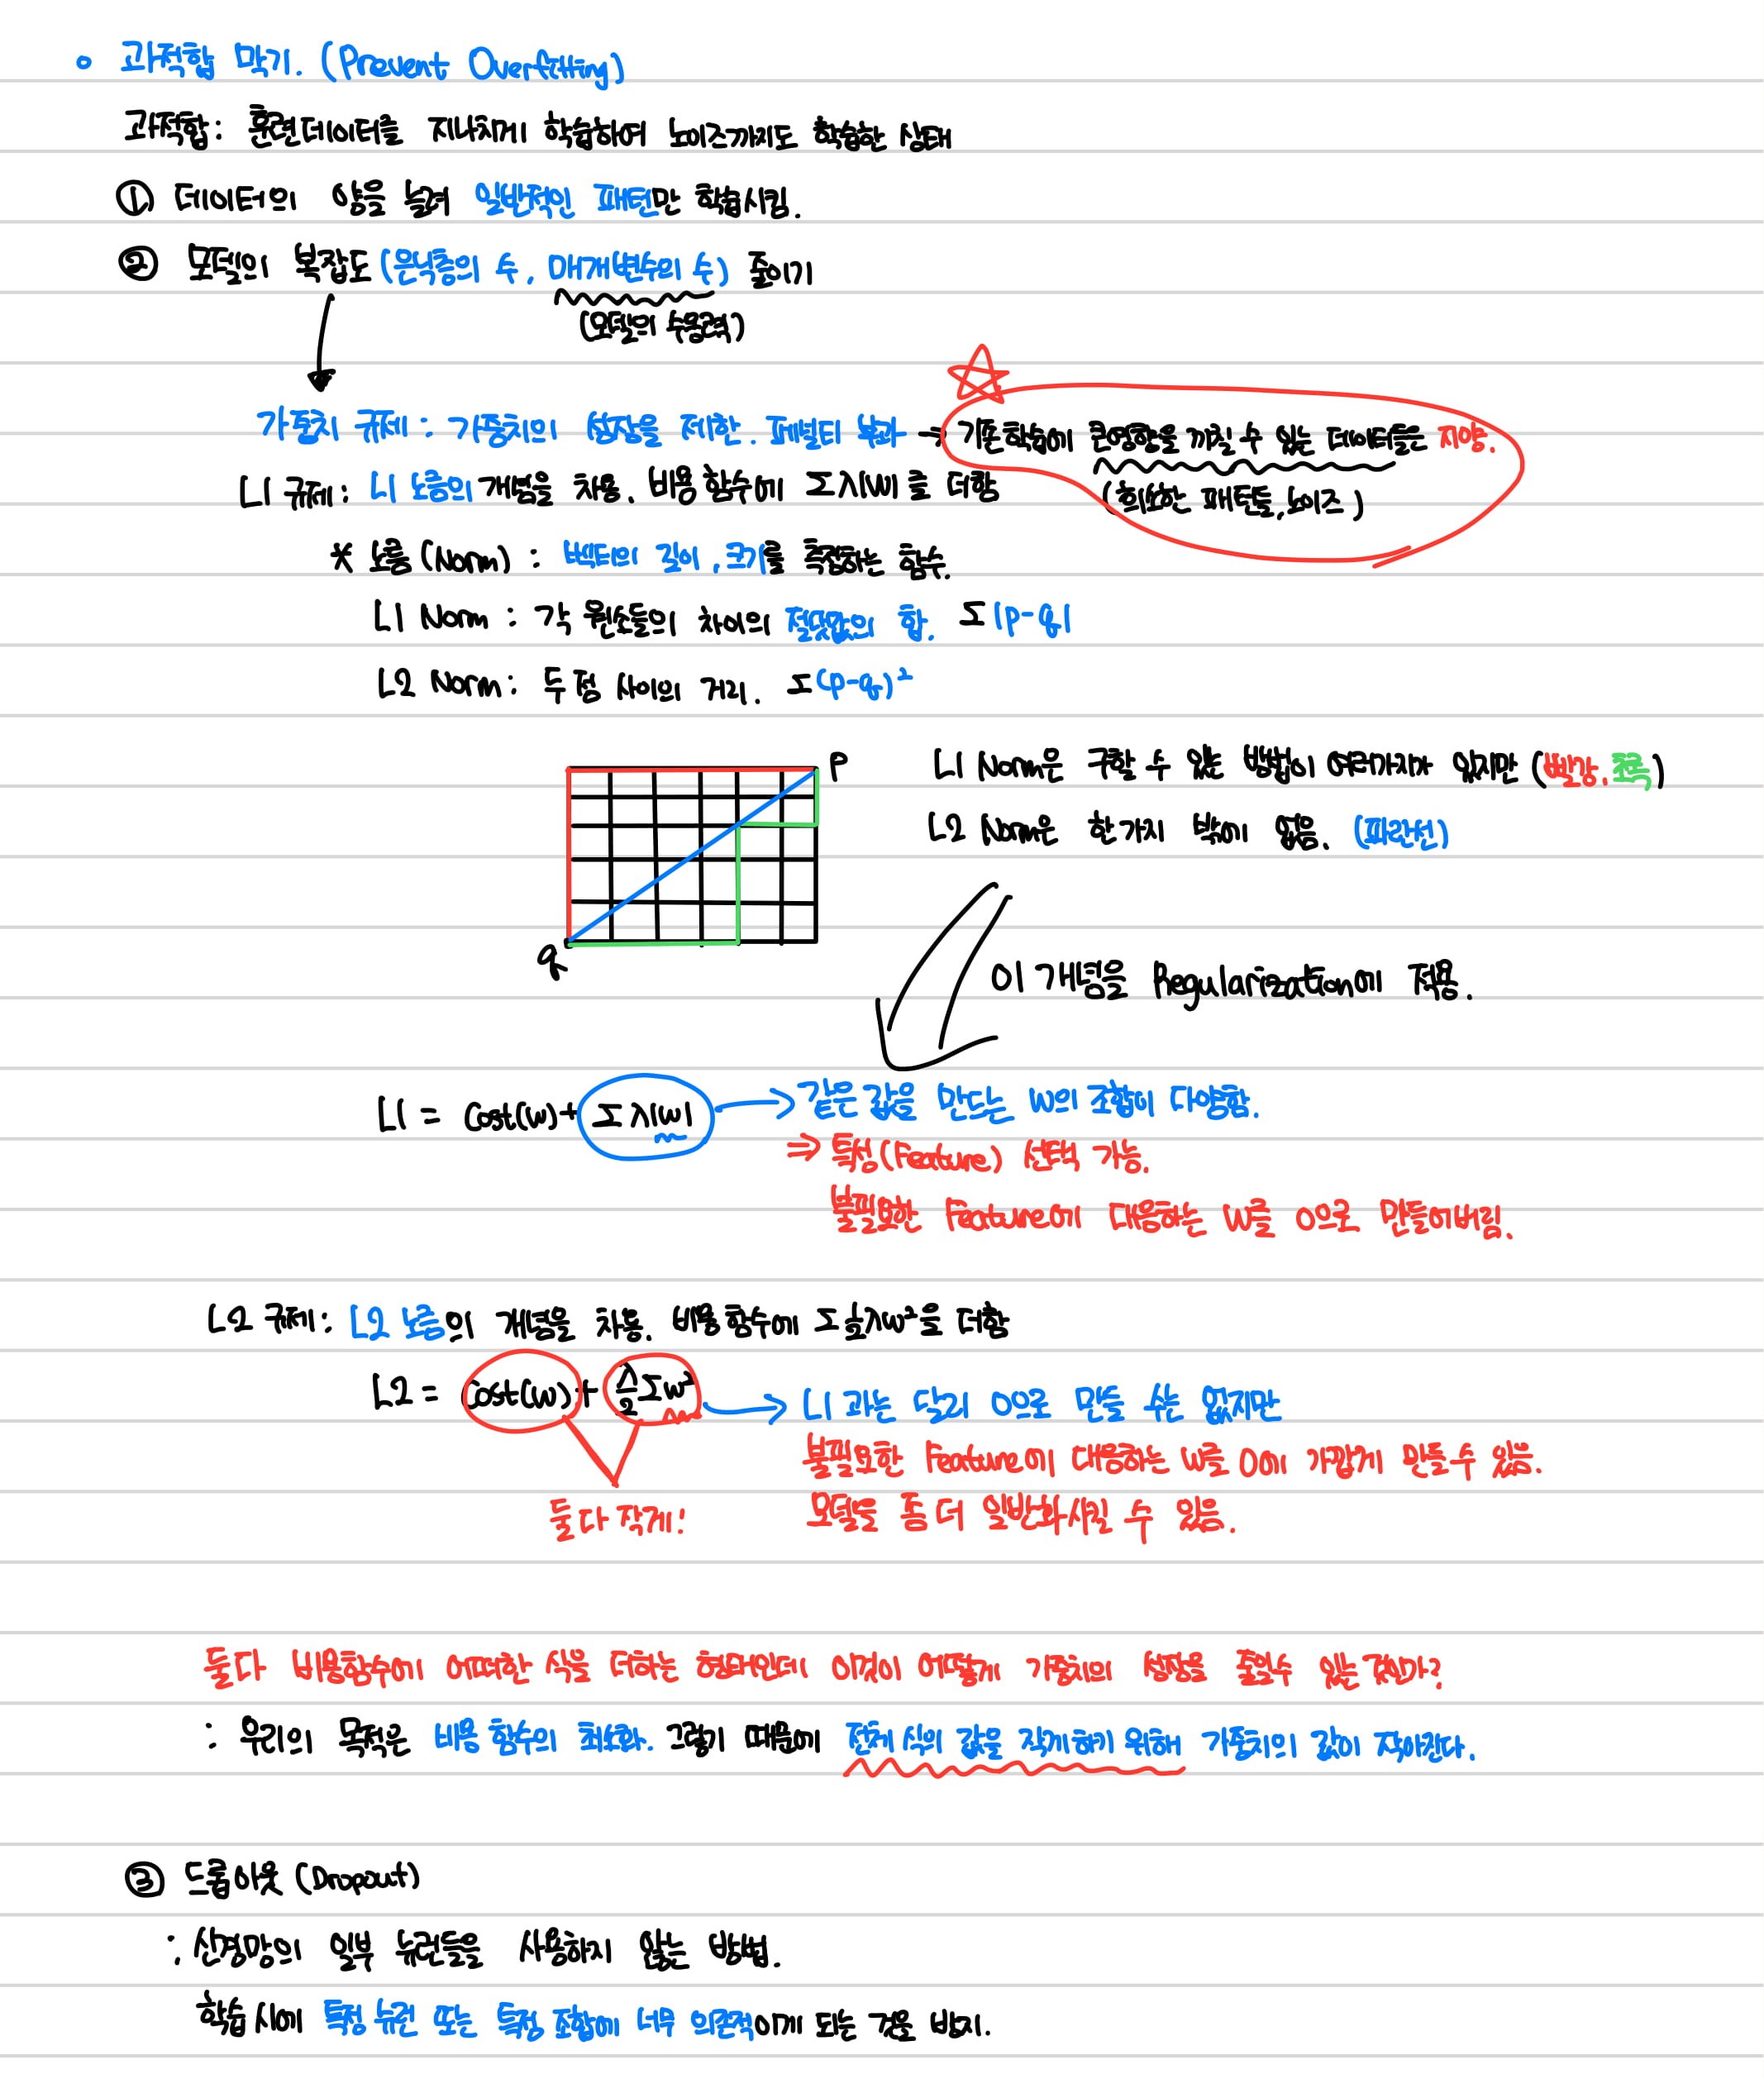 ◦ 과적합 막기. (Prevent Overfitting)
과적합: 훈련데이터를 지나치게 학습하여 노이즈까지도 학습한 상태
① 데이터의 양을 늘려 일반적인 패턴만 학습시킴.
② 모델의 복잡도(은닉층의 수, 매개변수의 수) 줄이기
(모델의 수용력)
가중치 규제 : 가중치의 성장을 제한. 페널티 부과 → 기존학습에 큰영향을 끼칠 수 있는 데이터들은 지양.
(희소한 패턴들, 노이즈)
L1 규제: L1 노름의 개념을 차용. 비용 함수에 Σλ|w|를 더함
* 노름(Norm) : 벡터의 길이, 크기를 측정하는 함수.
L1 Norm : 각 원소들의 차이의 절댓값의 합. Σ|p-q|
L2 Norm: 두 점 사이의 거리. Σ(p-q)²
p
q
L1 Norm은 구할 수 있는 방법이 여러가지가 있지만 (빨강, 초록)
L2 Norm은 한가지 밖에 없음. (파란선)
이 개념을 Regularization에 적용.
L1 = Cost(w) + Σλ|w| → 같은 값을 만드는 w의 조합이 다양함.
⇒ 특성(Feature) 선택 가능.
불필요한 Feature에 대응하는 w를 0으로 만들어버림.
L2 규제: L2 노름의 개념을 차용. 비용 함수에 Σ½λw²을 더함
L2 = Cost(w) + λ/2 Σw² → L1 과는 달리 0으로 만들 수는 없지만
불필요한 Feature에 대응하는 w를 0에 가깝게 만들수 있음.
모델을 좀 더 일반화시킬 수 있음.
둘다 작게!
둘다 비용함수에 어떠한 식을 더하는 형태인데 이것이 어떻게 가중치의 성장을 줄일수 있는 것인가?
: 우리의 목적은 비용 함수의 최소화. 그렇기 때문에 전체 식의 값을 작게하기 위해 가중치의 값이 작아진다.
③ 드롭아웃 (Dropout)
: 신경망의 일부 뉴런들을 사용하지 않는 방법.
학습 시에 특정 뉴런 또는 특정 조합에 너무 의존적이게 되는 것을 방지.